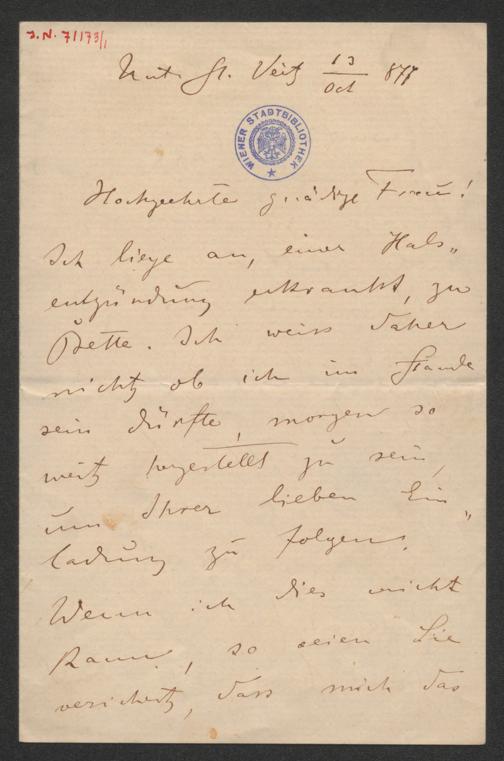 J.N. 7/173/1
Unt. St. Veit 13/Oct 877
WIENER STADTBIBLIOTHEK
Hochgeehrte gnädige Frau!
Ich liege an, einer Hals„
entzündung erkrankt, zu
Bette. Ich weiss daher
nicht ob ich im Stande
sein dürfte, morgen so
weit hergestellt zu sein,
um Ihrer lieben Ein„
ladung zu folgen.
Wenn ich dies nicht
kann, so seien Sie
versichert, dass mich das